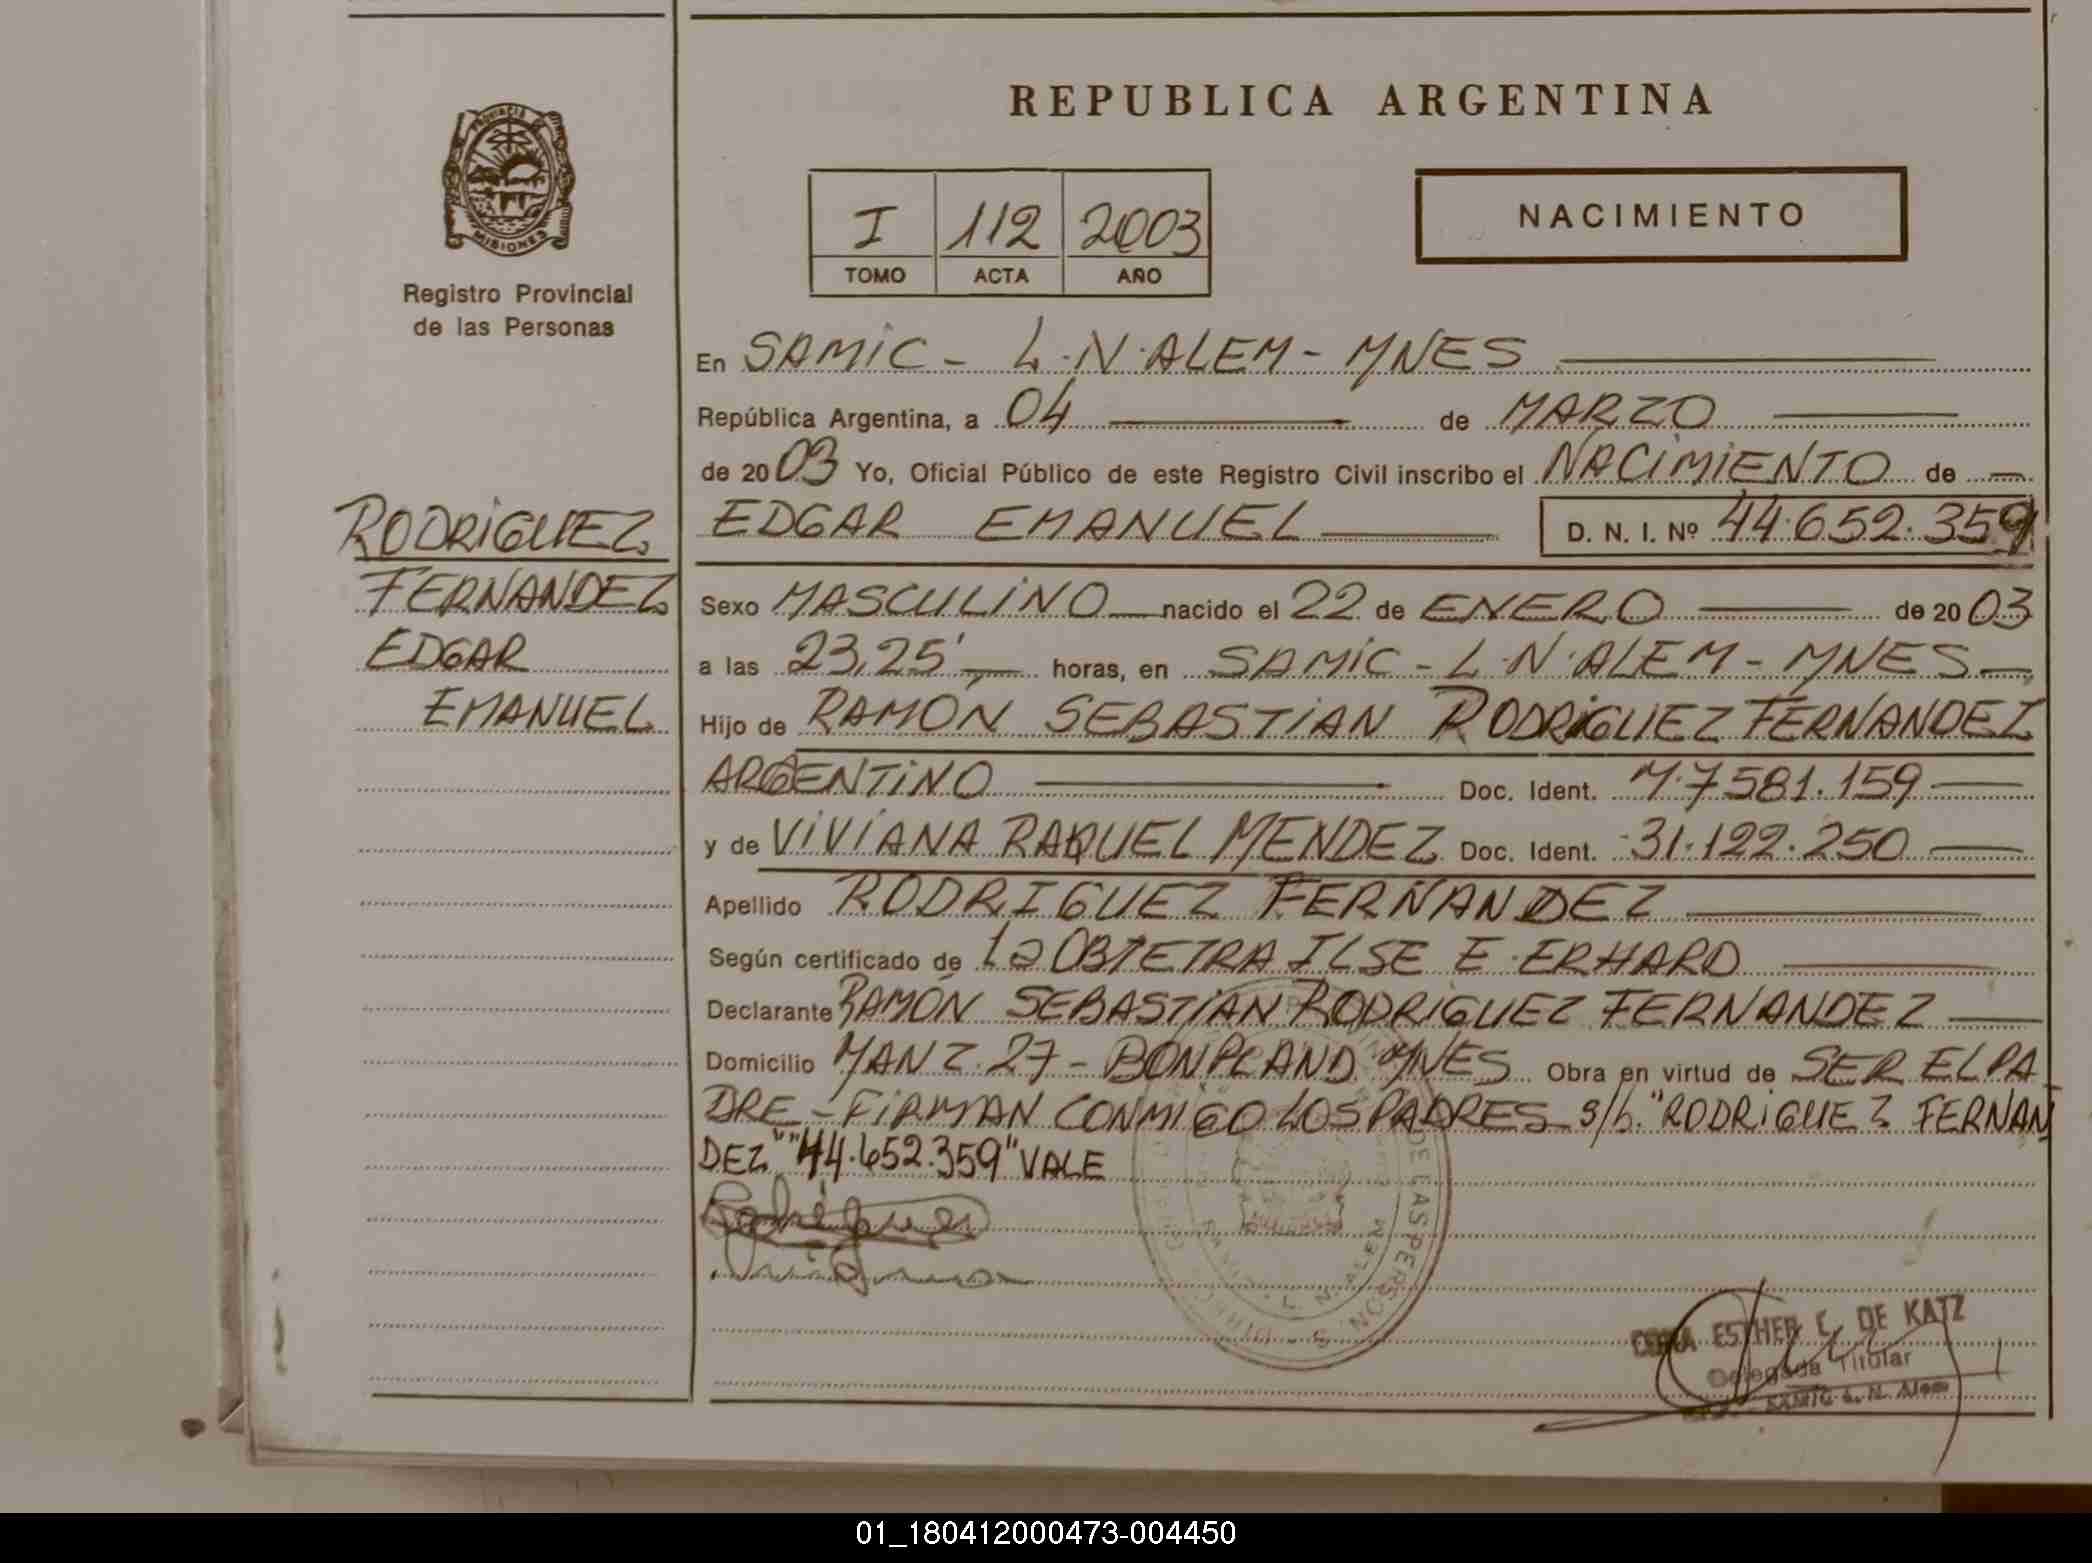 REPUBLICA ARGENTINA
PROVINCIA DE
MISIONES
Registro Provincial
de las Personas
I 112 2003
TOMO ACTA AÑO
NACIMIENTO
En SAMIC - L.N.ALEM - MNES
República Argentina, a 04 de MARZO
de 2003 Yo, Oficial Público de este Registro Civil inscribo el NACIMIENTO de
RODRIGUEZ
FERNANDEZ
EDGAR
EMANUEL
EDGAR EMANUEL D. N. I. Nº 44.652.359
Sexo MASCULINO nacido el 22 de ENERO de 2003
a las 23,25' horas, en SAMIC - L.N.ALEM - MNES
Hijo de RAMÓN SEBASTIAN RODRIGUEZ FERNANDEZ
ARGENTINO Doc. Ident. M.7581.159
y de VIVIANA RAQUEL MENDEZ Doc. Ident. 31.122.250
Apellido RODRIGUEZ FERNANDEZ
Según certificado de la OBTETRA ILSE E. ERHARD
Declarante RAMÓN SEBASTIAN RODRIGUEZ FERNANDEZ
Domicilio MANZ.27 - BONPLAND MNES Obra en virtud de SER EL PA
DRE - FIRMAN CONMIGO LOS PADRES s/b. "RODRIGUEZ FERNAN
DEZ" "44.652.359" VALE
DE LAS PERSONAS
SAMIC - L. N. ALEM
ESTHER C. DE KATZ
Delegada Titular
SAMIC L. N. Alem
01_180412000473-004450